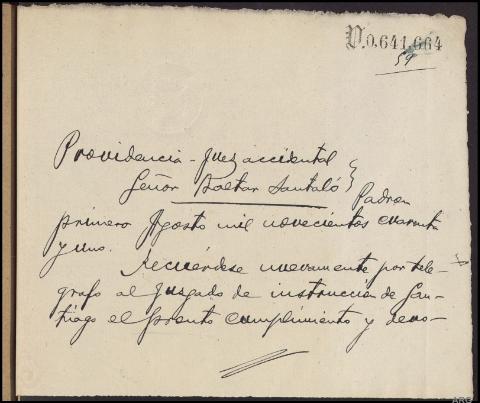 D.0.641.664
59
Providencia - Juez accidental
Señor Baltar Santaló } Padron
primero Agosto mil novecientos cuarenta
y uno.
Recuérdese nuevamente por telé-
grafo al Juzgado de instrucción de San-
tiago el pronto cumplimiento y devo-